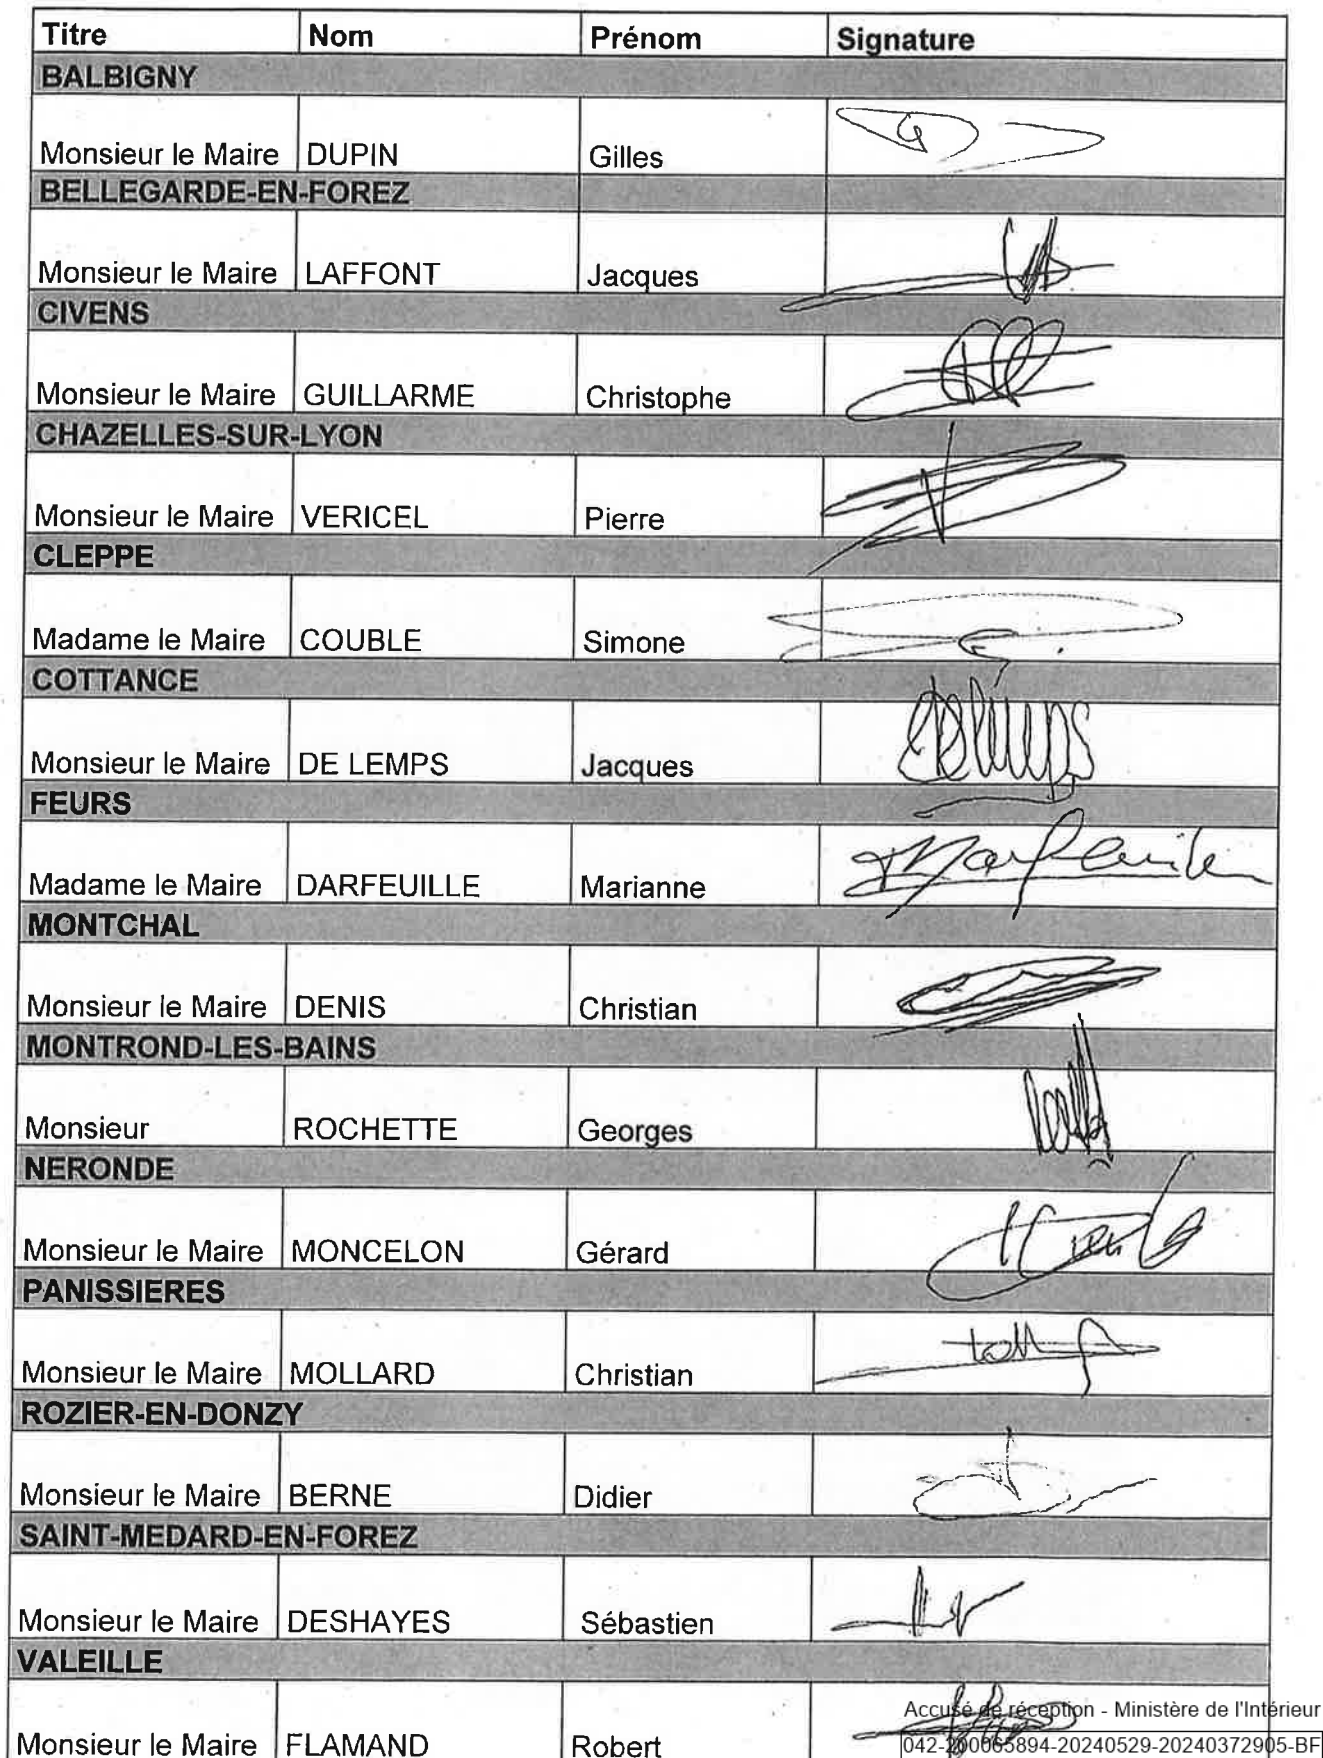 Titre Nom Prénom Signature
BALBIGNY
Monsieur le Maire DUPIN Gilles
BELLEGARDE-EN-FOREZ
Monsieur le Maire LAFFONT Jacques
CIVENS
Monsieur le Maire GUILLARME Christophe
CHAZELLES-SUR-LYON
Monsieur le Maire VERICEL Pierre
CLEPPE
Madame le Maire COUBLE Simone
COTTANCE
Monsieur le Maire DE LEMPS Jacques
FEURS
Madame le Maire DARFEUILLE Marianne
MONTCHAL
Monsieur le Maire DENIS Christian
MONTROND-LES-BAINS
Monsieur ROCHETTE Georges
NERONDE
Monsieur le Maire MONCELON Gérard
PANISSIERES
Monsieur le Maire MOLLARD Christian
ROZIER-EN-DONZY
Monsieur le Maire BERNE Didier
SAINT-MEDARD-EN-FOREZ
Monsieur le Maire DESHAYES Sébastien
VALEILLE
Accusé de réception - Ministère de l'Intérieur
Monsieur le Maire FLAMAND Robert
042-200065894-20240529-20240372905-BF